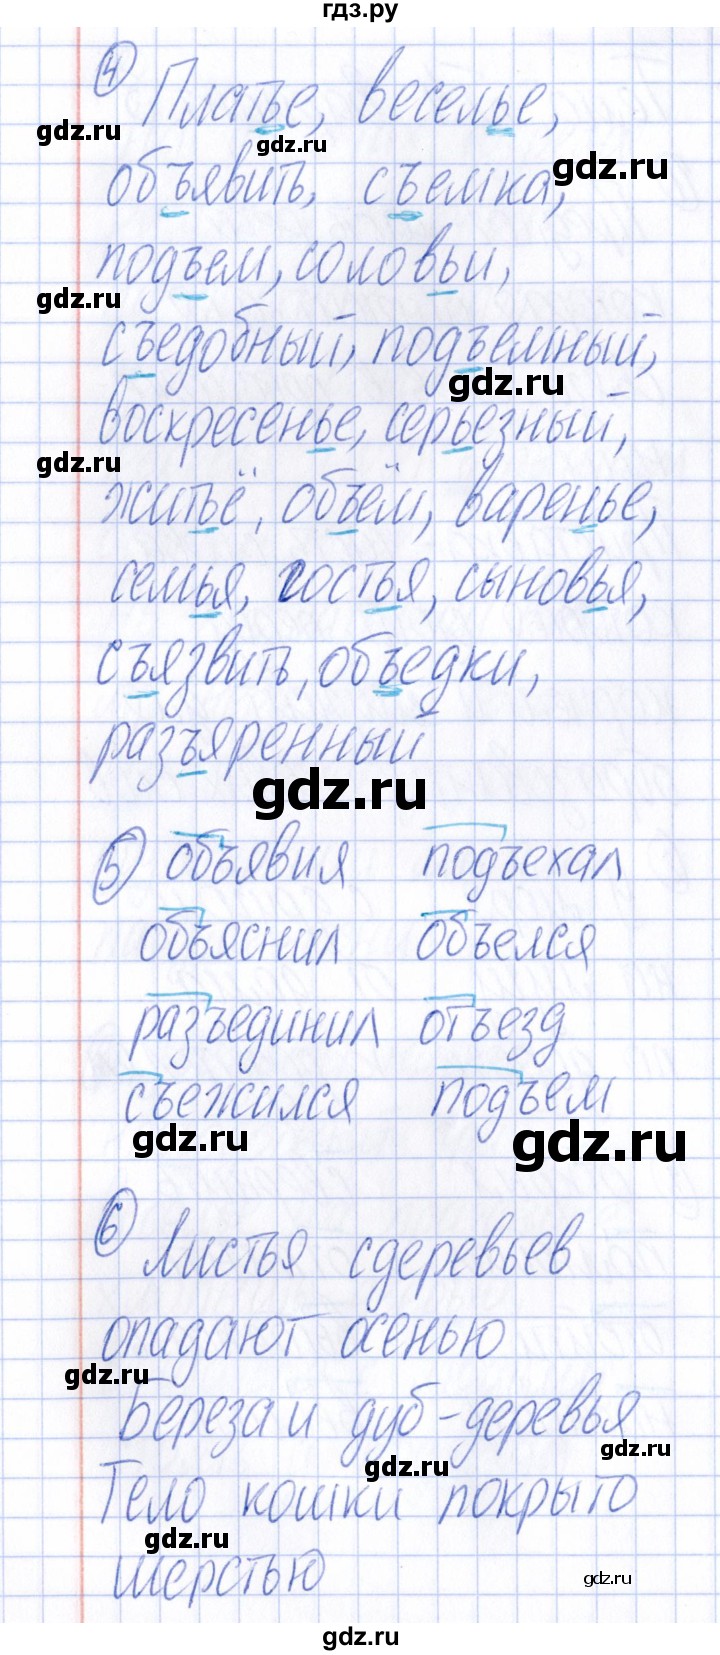 гдз.ру
4
Платье, веселье,
gdz.ru
gdz.ru
gdz.ru
объявить, съемка,
подъем, соловьи,
gdz.ru
съедобный, подъемный,
gdz.ru
воскресенье, серьезный,
gdz.ru
житьё, объём, варенье,
семья, гостья, сыновья,
съязвить, объедки,
разъяренный
gdz.ru
5 объявия подъехал
объяснил объелся
разъединил отъезд
съежился подъем
gdz.ru
gdz.ru
6
Листья с деревьев
опадают осенью
gdz.ru
Береза и дуб - деревья
gdz.ru
gdz.ru
Тело кошки покрыто
gdz.ru
шерстью
gdz.ru
gdz.ru